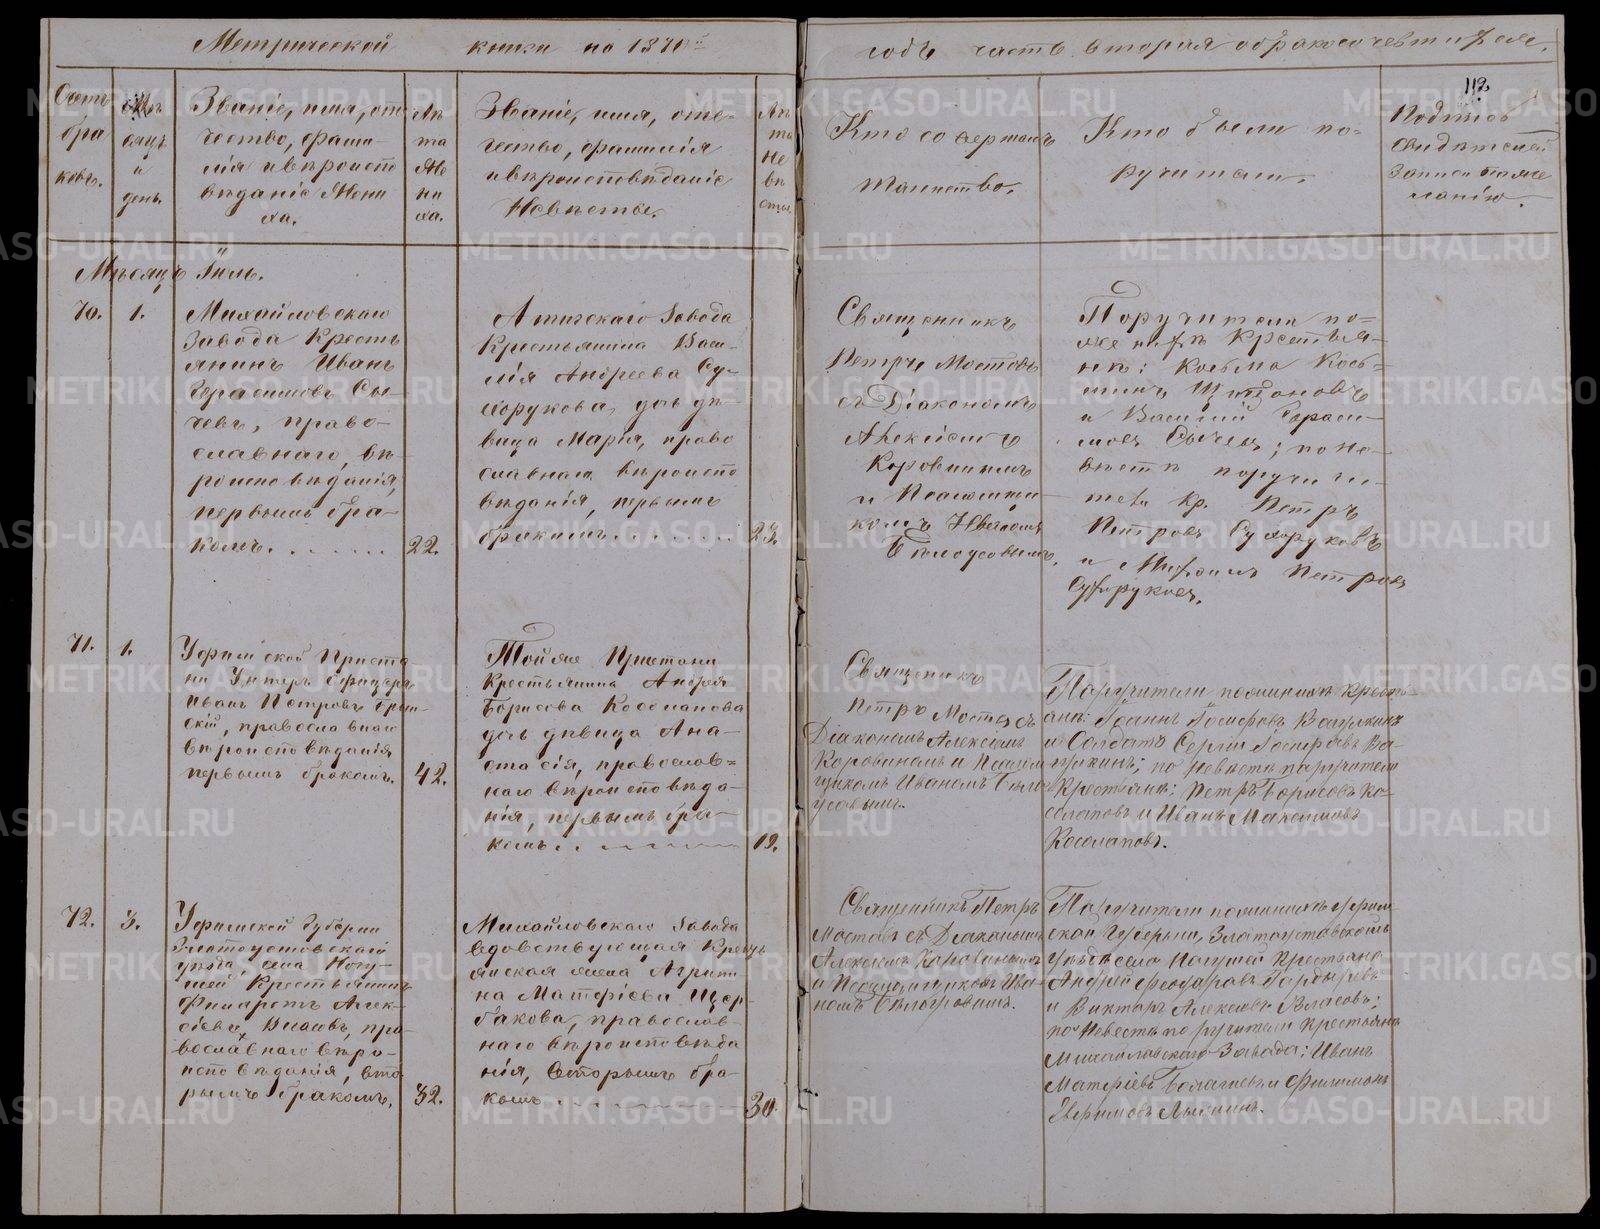 Метрической книги на 1870й
годъ часть вторая о бракосочетавшихся.
112
Счетъ
бра
ковъ.
Мѣ
сяцъ
и
день.
Званіе, имя, от
чество, фами
лія и вѣроиспо
вѣданіе Жени
ха.
Лѣ
та
Же
ни
ха.
Званіе, имя, оте-
чество, фамилія
и вѣроисповѣданіе
Невѣсты.
Лѣ
та
Не
вѣ
сты.
Кто совершалъ
таинство.
Кто были по-
ручители.
Подпись
свидѣтелей
записи по же
ланію.
Мѣсяцъ Іюль.
70.
1.
Михайловскаго
Завода Кресть
янинъ Иванъ
Герасимовъ Сы-
чевъ, право-
славнаго, вѣ-
роисповѣданія,
первымъ бра-
комъ.
22.
Атигскаго Завода
Крестьянина Васи-
лія Андреева Су-
хорукова, дочь дѣ-
вица Марія, право
славнаго вѣроиспо
вѣданія, первымъ
бракомъ.
23.
Священникъ
Петръ Мостовъ
съ Діакономъ
Алексіемъ
Коровинымъ
и Псаломщи-
комъ Иваномъ
Бѣлоусовымъ.
Поручители по-
женихѣ Крестья-
не: Козьма Козь-
минъ
и Василій Гераси-
мовъ Сычевъ; по не-
вѣстѣ поручи-
тели кр. Петръ
Петровъ Сухоруковъ
и Петровъ
Сухоруковъ.
71.
1.
Уфимской Приста
ни Унтеръ Офицеръ
Иванъ Петровъ
православнаго
вѣроисповѣданія
первымъ бракомъ.
42.
Той же Пристани
Крестьянина Андрея
Борисова Косолапова
дочь дѣвица Ана-
стасія, православ-
наго вѣроисповѣда-
нія, первымъ бра-
комъ.
19.
Священникъ
Петръ Мостовъ съ
Діакономъ Алексіемъ
Коровинымъ и Псалом
щикомъ Иваномъ Бѣло
усовымъ.
Поручители по женихѣ Кресть-
яне: Іоаннъ Іосифовъ
и Солдатъ Сергій Іосифовъ
по невѣстѣ поручители
Крестьяне: Петръ Борисовъ Ко-
солаповъ и Иванъ Максимовъ
Косолаповъ.
72.
3.
Уфимской Губерніи
Златоустовскаго
уѣзда, села Ногу-
шей Крестьянинъ
Филаретъ Алек-
сіевъ, Власовъ, пра-
вославнаго вѣро-
исповѣданія, вто
рымъ бракомъ.
32.
Михайловскаго Завода
вдовствующая Кресть
янская жена Агрипи
на Матфіева Щер-
бакова, православ-
наго вѣроисповѣда
нія, вторымъ бра-
комъ.
30.
Священникъ Петръ
Мостовъ съ Діакономъ
Алексіемъ Коровинымъ
и Псаломщикомъ Ива-
номъ Бѣлоусовымъ.
Поручители по женихѣ Уфим-
ской Губерніи, Златоустовскаго
Уѣзда села Ногушей Крестьяне
Андрей Феодоровъ
и Викторъ Алексѣевъ Власовъ;
по невѣстѣ поручители Крестьяне
Михайловскаго Завода: Иванъ
Матфіевъ и Филимонъ
Ефимовъ
METRIKI.GASO-URAL.RU